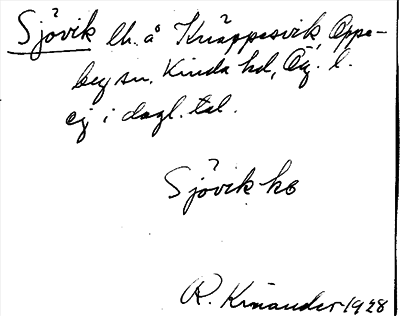 Sjövik lh. å Knäppesvik, Oppe-
by sn. Kinda hd, Ög. l.
ej i dagl. tal.
Sjövik ho
R. Kinander 1928